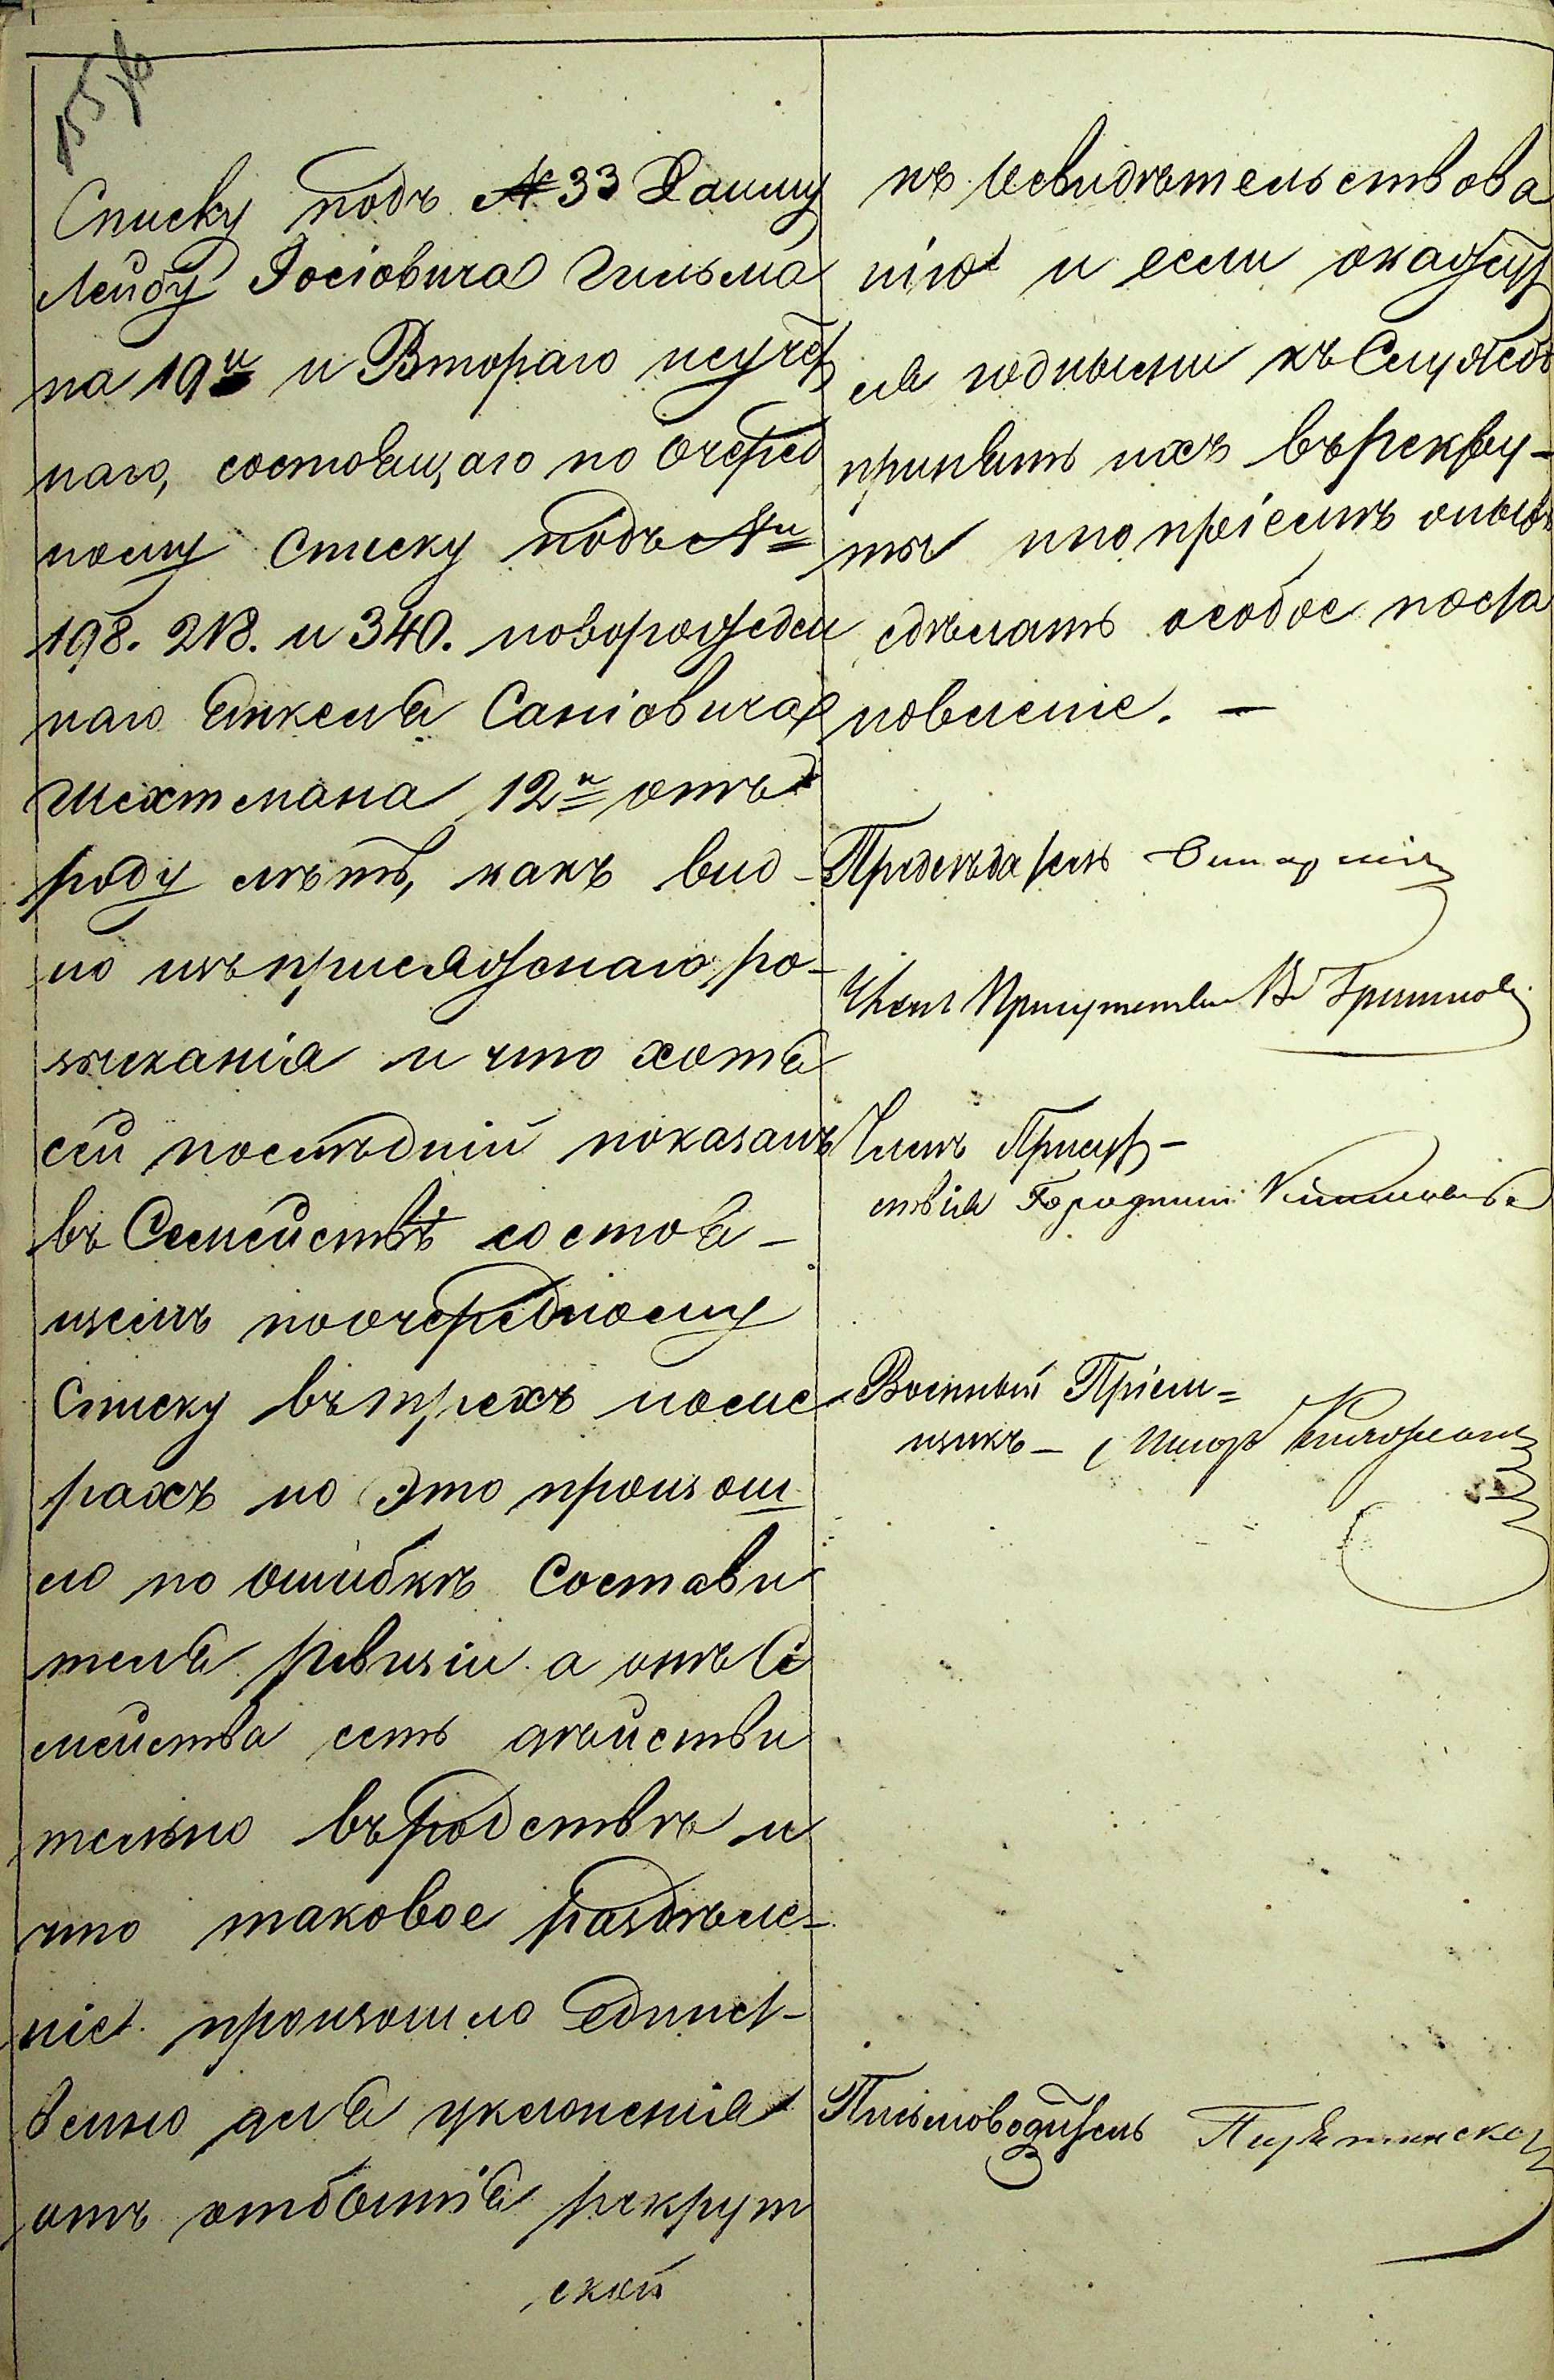 Списку подъ № 33 Данилу
Лейбу Іосіовича Гильма
на 19<sup>и</sup> и Втораго неучет
наго, состоящаго по Очеред
ному списку подъ №<sup>и</sup>
198. 218. и 340. новорожден
наго Янкеля Саніовича
Шехтмана 12<sup>и</sup> отъ
роду лѣтъ, какъ вид-
но изъ присяжнаго ро-
зысканія и что хотя
сей послѣдній показанъ
въ Семействѣ состоя-
щемъ по очередному
Списку въ трехъ номе-
рахъ но Это произош
ло по ошибкѣ Состави
теля ревизіи а отъ Се
мейства есть дѣйстви
тельно въ родствѣ и
что таковое раздѣле-
ніе произошло Единст-
венно для уклоненія
отъ отбытія рекрут
ской
къ Освидѣтельствова
нію и если окажут
ся годными къ Службѣ
принять ихъ въ рекру-
ты и по пріемѣ оныхъ
сдѣлать особое поста
новленіе. —
Предсѣдатель
Членъ Присутствія
Членъ Присут-
ствія Городничій
Военный Пріем=
щикъ —
Письмоводитель